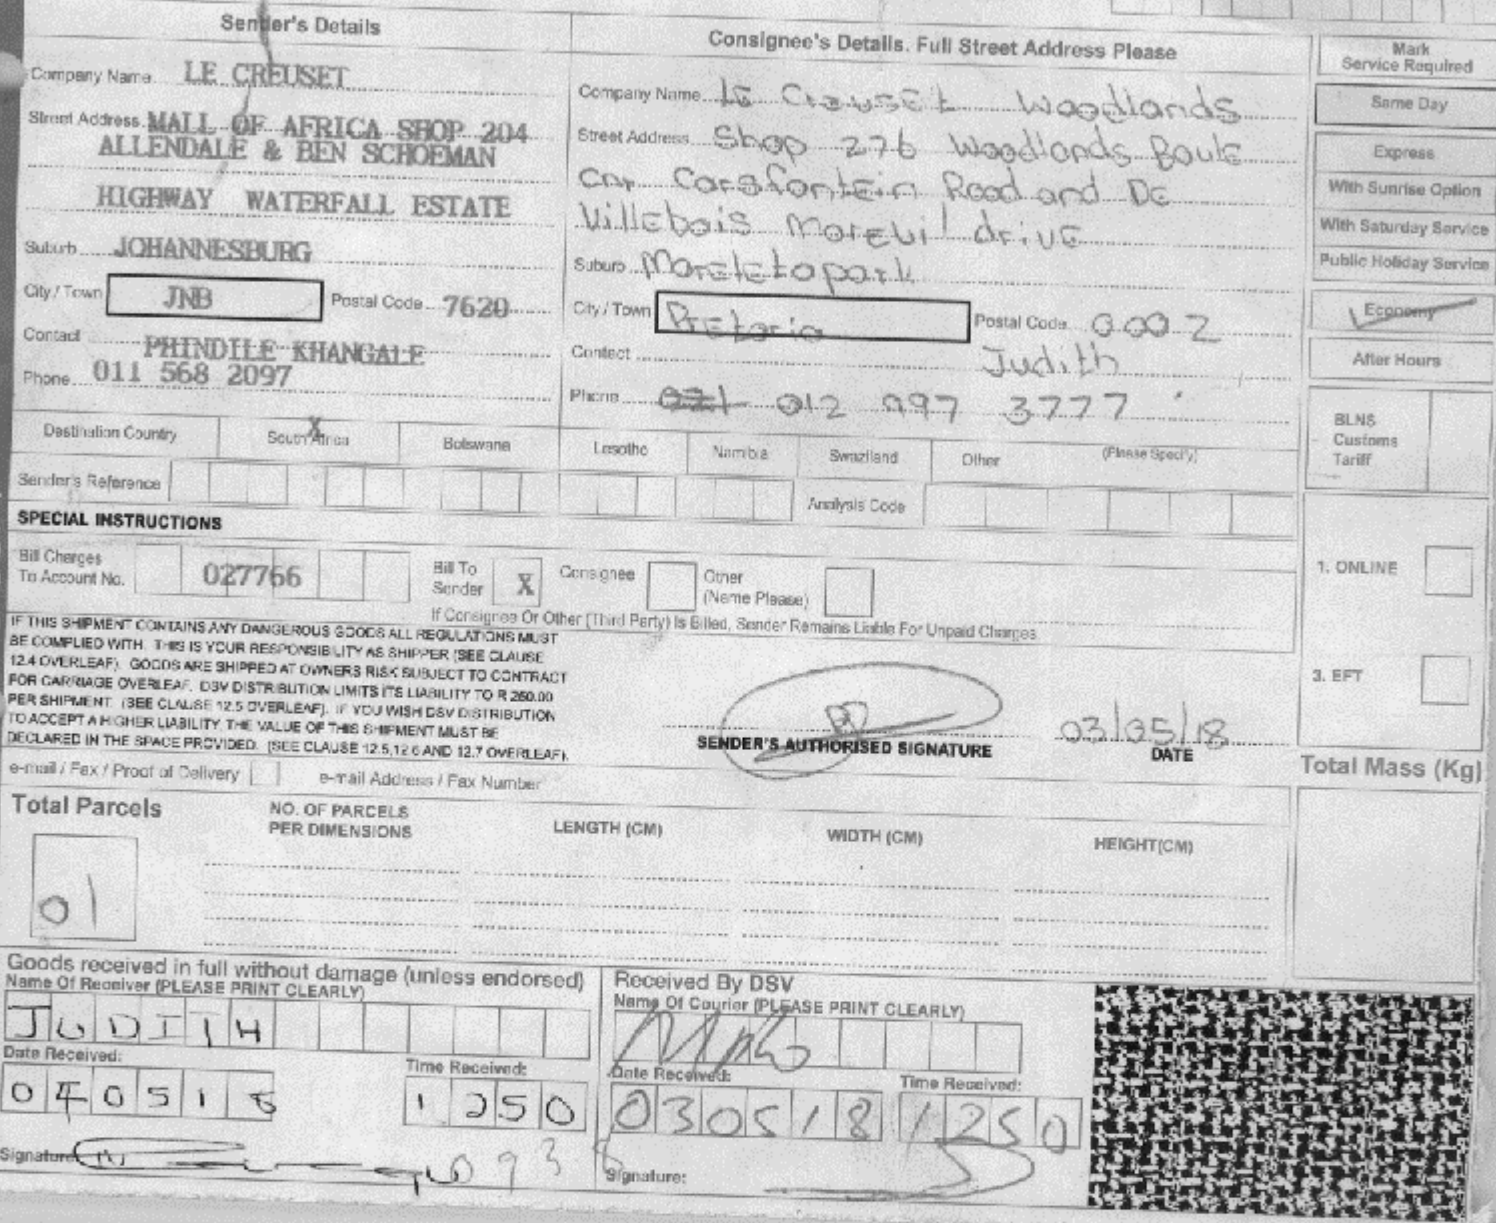 Sender's Details
Company Name LE CREUSET
Street Address MALL OF AFRICA SHOP 204
ALLENDALE & BEN SCHOEMAN
HIGHWAY WATERFALL ESTATE
Suburb JOHANNESBURG
City / Town JNB Postal Code 7620
Contact PHINDILE KHANGALE
Phone 011 568 2097
Consignee's Details. Full Street Address Please
Company Name LE CrEUSEt Woodlands
Street Address Shop 276 Woodlands Boule
Cnr Corsfontein Road and DE
VillEbois morEuil drive
Suburb MorElEtapark
City / Town PrEtoria Postal Code 0002
Contact Judith
Phone 021 012 997 3777
Mark
Service Required
Same Day
Express
With Sunrise Option
With Saturday Service
Public Holiday Service
Economy
After Hours
BLNS
Customs
Tariff
Destination Country South Africa X Botswana Lesotho Namibia Swaziland Other (Please Specify)
Sender's Reference Analysis Code
SPECIAL INSTRUCTIONS
Bill Charges
To Account No. 027766 Bill To
Sender X Consignee Other
(Name Please)
If Consignee Or Other (Third Party) Is Billed, Sender Remains Liable For Unpaid Charges
1. ONLINE
3. EFT
IF THIS SHIPMENT CONTAINS ANY DANGEROUS GOODS ALL REGULATIONS MUST
BE COMPLIED WITH. THIS IS YOUR RESPONSIBILITY AS SHIPPER (SEE CLAUSE
12.4 OVERLEAF). GOODS ARE SHIPPED AT OWNERS RISK SUBJECT TO CONTRACT
FOR CARRIAGE OVERLEAF. DSV DISTRIBUTION LIMITS ITS LIABILITY TO R 250.00
PER SHIPMENT. (SEE CLAUSE 12.5 OVERLEAF). IF YOU WISH DSV DISTRIBUTION
TO ACCEPT A HIGHER LIABILITY, THE VALUE OF THIS SHIPMENT MUST BE
DECLARED IN THE SPACE PROVIDED. (SEE CLAUSE 12.5,12.6 AND 12.7 OVERLEAF).
SENDER'S AUTHORISED SIGNATURE
03/05/18
DATE
e-mail / Fax / Proof of Delivery e-mail Address / Fax Number
Total Mass (Kg)
Total Parcels
01
NO. OF PARCELS
PER DIMENSIONS LENGTH (CM) WIDTH (CM) HEIGHT(CM)
Goods received in full without damage (unless endorsed)
Name Of Receiver (PLEASE PRINT CLEARLY)
JUDITH
Date Received: Time Received:
040518 1250
Signature:
Received By DSV
Name Of Courier (PLEASE PRINT CLEARLY)
Date Received: Time Received:
030518 1250
Signature: